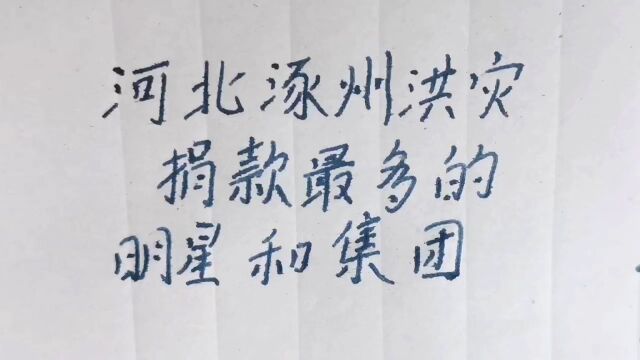 河北涿州洪灾
捐款最多的
明星和集团